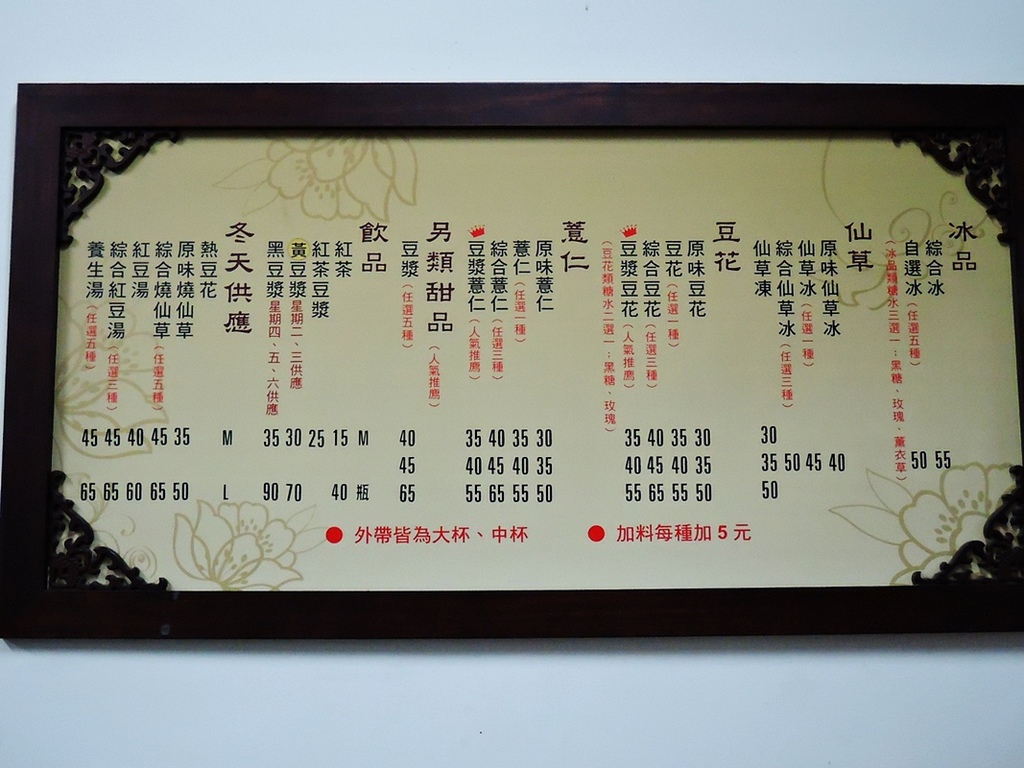 冰品
綜合冰 55
自選冰（任選五種） 50
（冰品類糖水三選一：黑糖、玫瑰、薰衣草）
仙草
原味仙草冰 40
仙草冰（任選一種） 45
綜合仙草冰（任選三種） 50
仙草凍 30 35 50
豆花
原味豆花 30 35 50
豆花（任選一種） 35 40 55
綜合豆花（任選三種） 40 45 65
豆漿豆花（人氣推薦） 35 40 55
（豆花類糖水二選一：黑糖、玫瑰）
薏仁
原味薏仁 30 35 50
薏仁（任選一種） 35 40 55
綜合薏仁（任選三種） 40 45 65
豆漿薏仁（人氣推薦） 35 40 55
另類甜品（人氣推薦）
豆漿（任選五種） 40 45 65
飲品 M 瓶
紅茶 15 40
紅茶豆漿 25
黃豆漿 星期二、三供應 30 70
黑豆漿 星期四、五、六供應 35 90
冬天供應 M L
熱豆花
原味燒仙草 35 50
綜合燒仙草（任選五種） 45 65
紅豆湯 40 60
綜合紅豆湯（任選三種） 45 65
養生湯（任選五種） 45 65
● 外帶皆為大杯、中杯
● 加料每種加 5 元